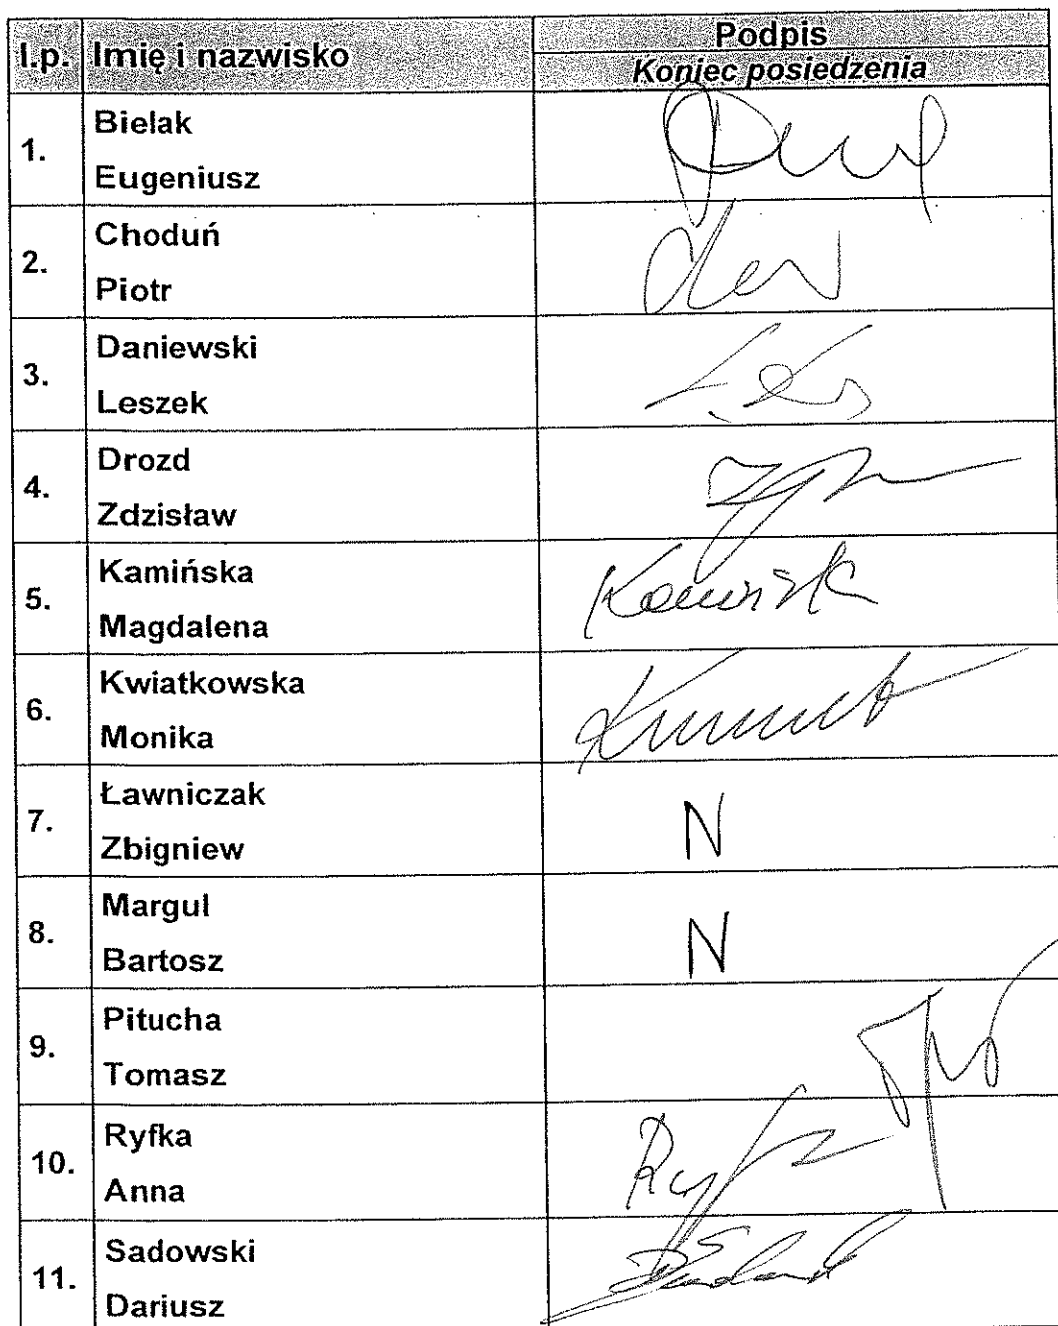 l.p. Imię i nazwisko Podpis
Koniec posiedzenia
1. Bielak
Eugeniusz
2. Choduń
Piotr
3. Daniewski
Leszek
4. Drozd
Zdzisław
5. Kamińska
Magdalena
6. Kwiatkowska
Monika
7. Ławniczak
Zbigniew
N
8. Margul
Bartosz
N
9. Pitucha
Tomasz
10. Ryfka
Anna
11. Sadowski
Dariusz